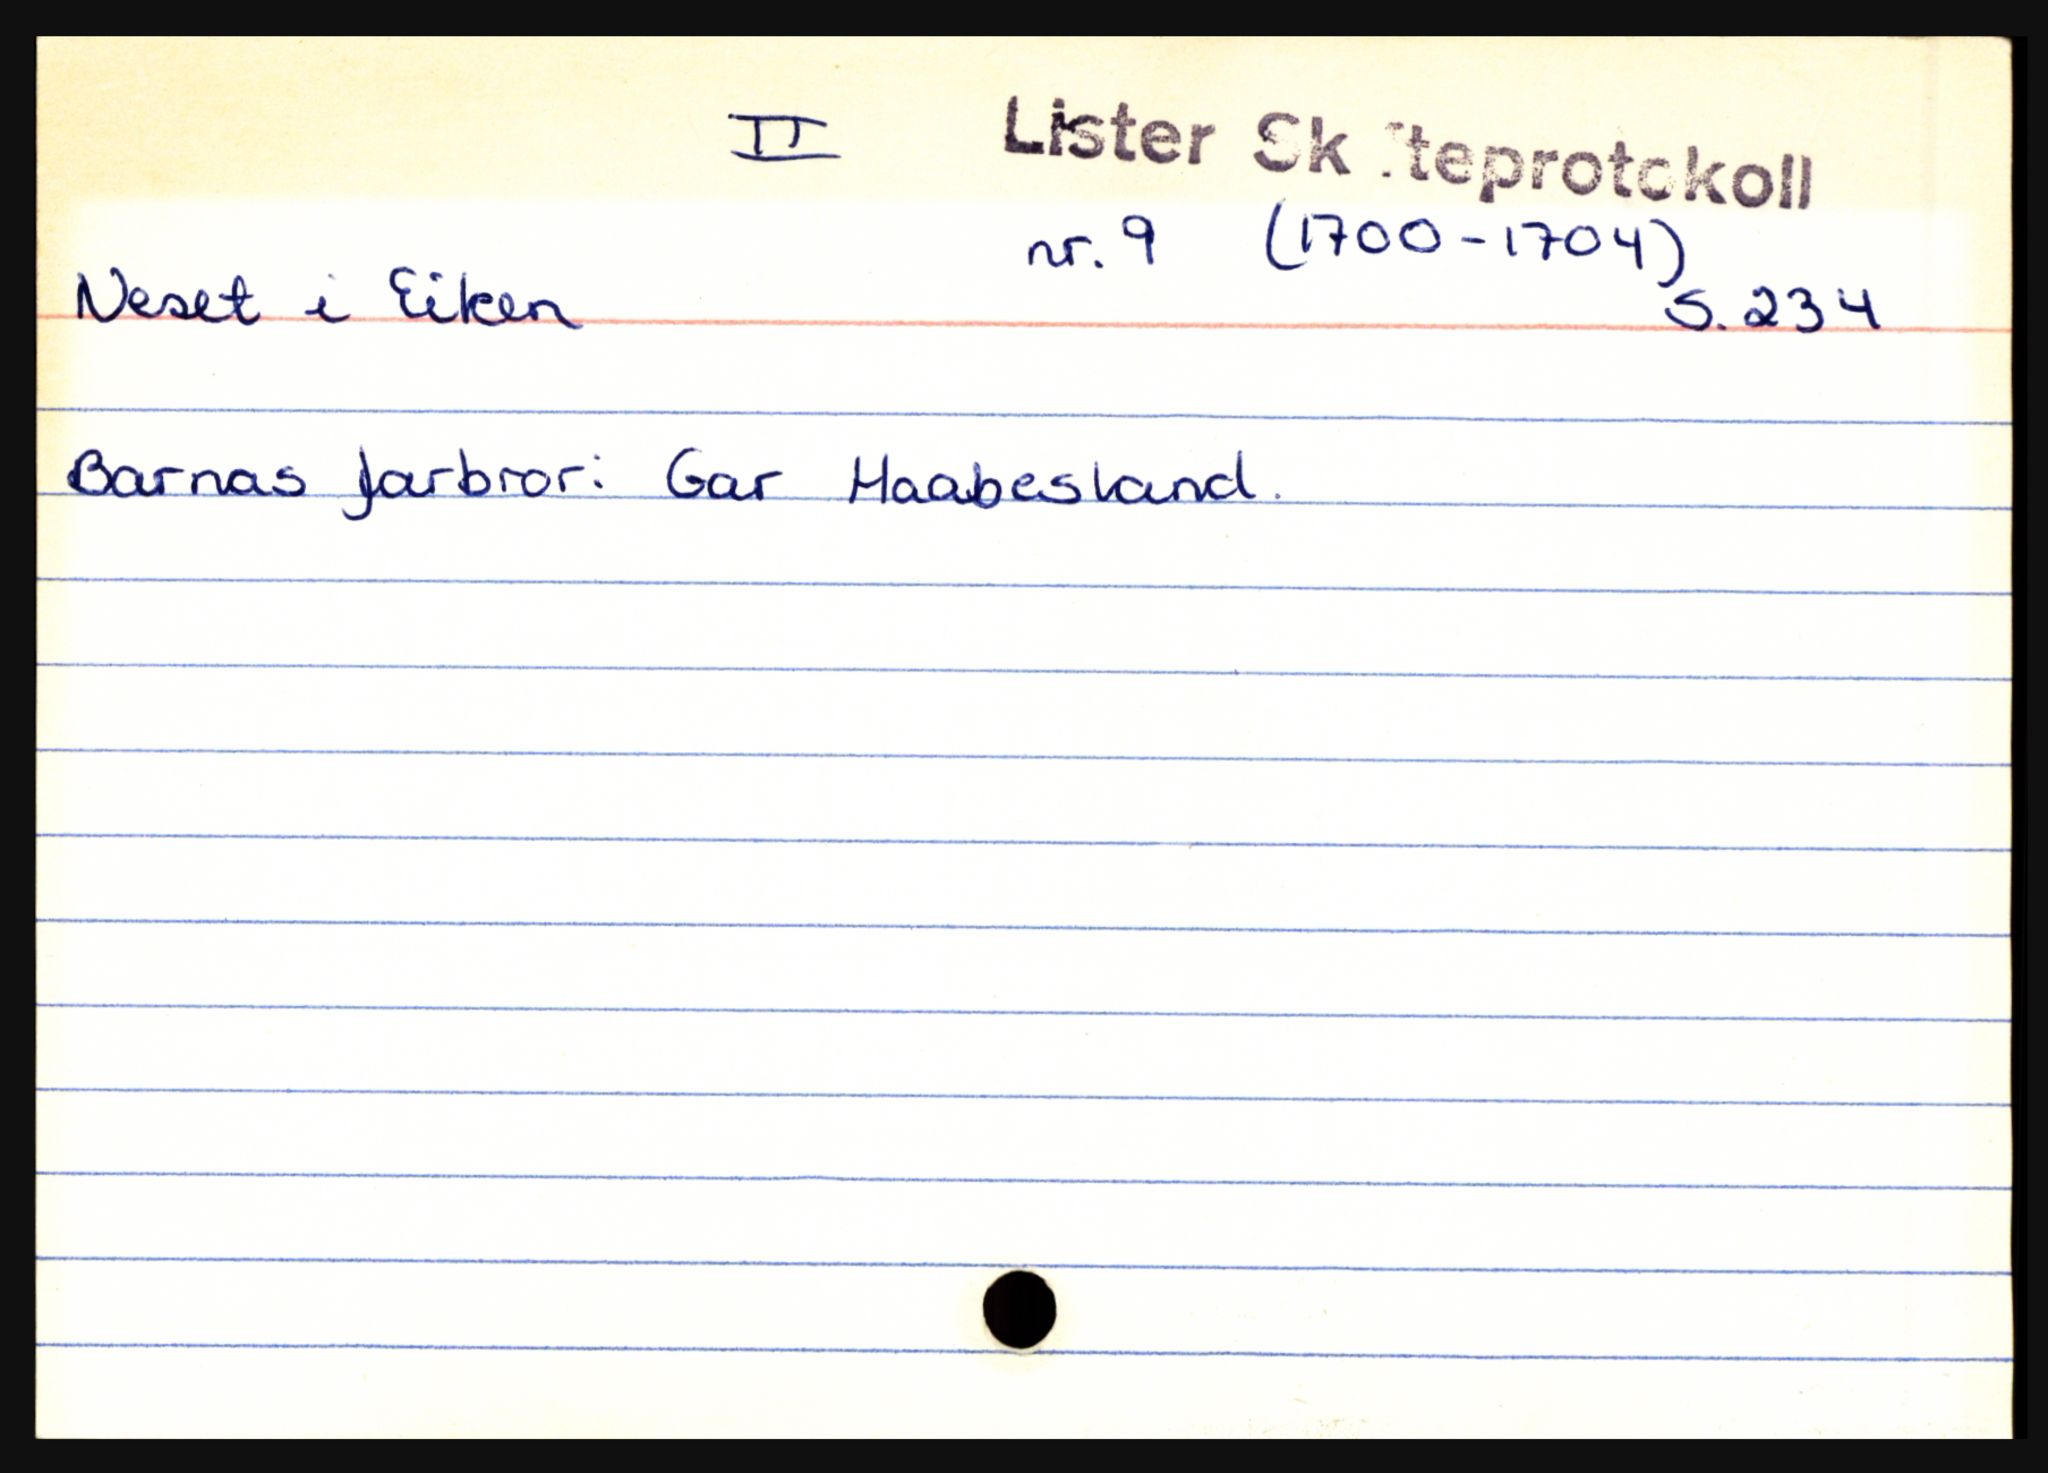 II Lister Skifteprotokoll
nr. 9 (1700-1704)
Neset i Eiken S. 234
Barnas farbror: Gar Haabesland.